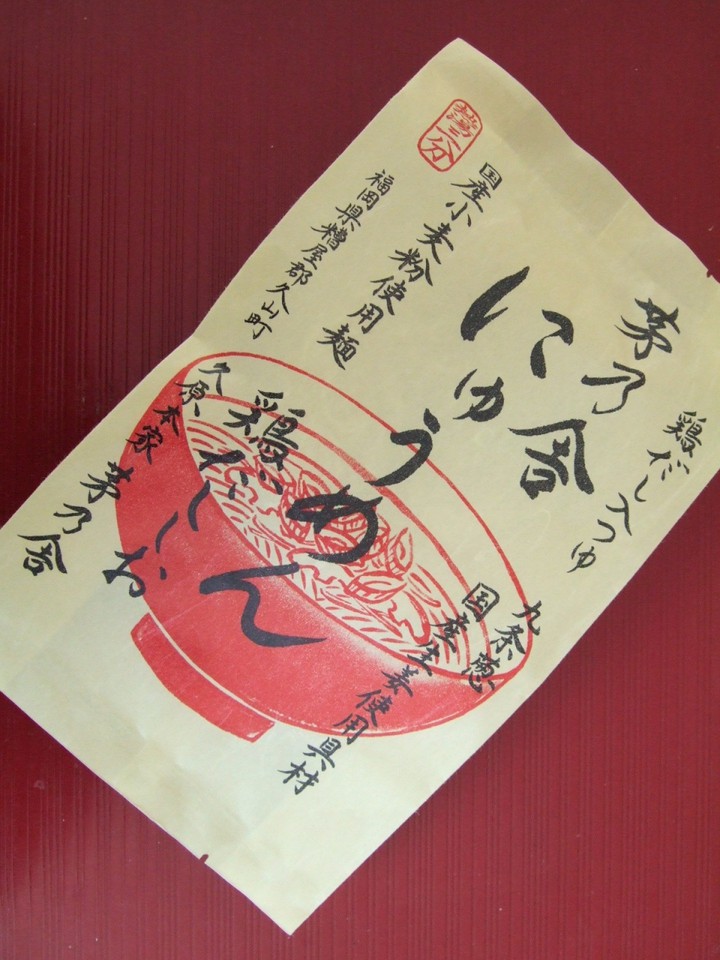 鶏だし入つゆ
茅乃舎
にゅうめん
鶏だししお
九条葱
国産生姜使用具材
熱湯二分
国産小麦粉使用麺
福岡県糟屋郡久山町
久原本家 茅乃舎